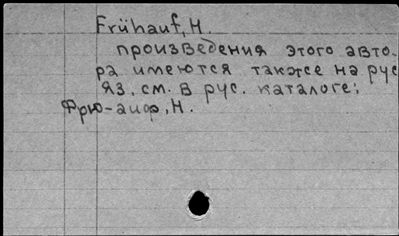 Frühauf, H.
произведения этого авто-
ра имеются также на рус
яз. см. в рус. каталоге:
Фрю-ауф, Н.